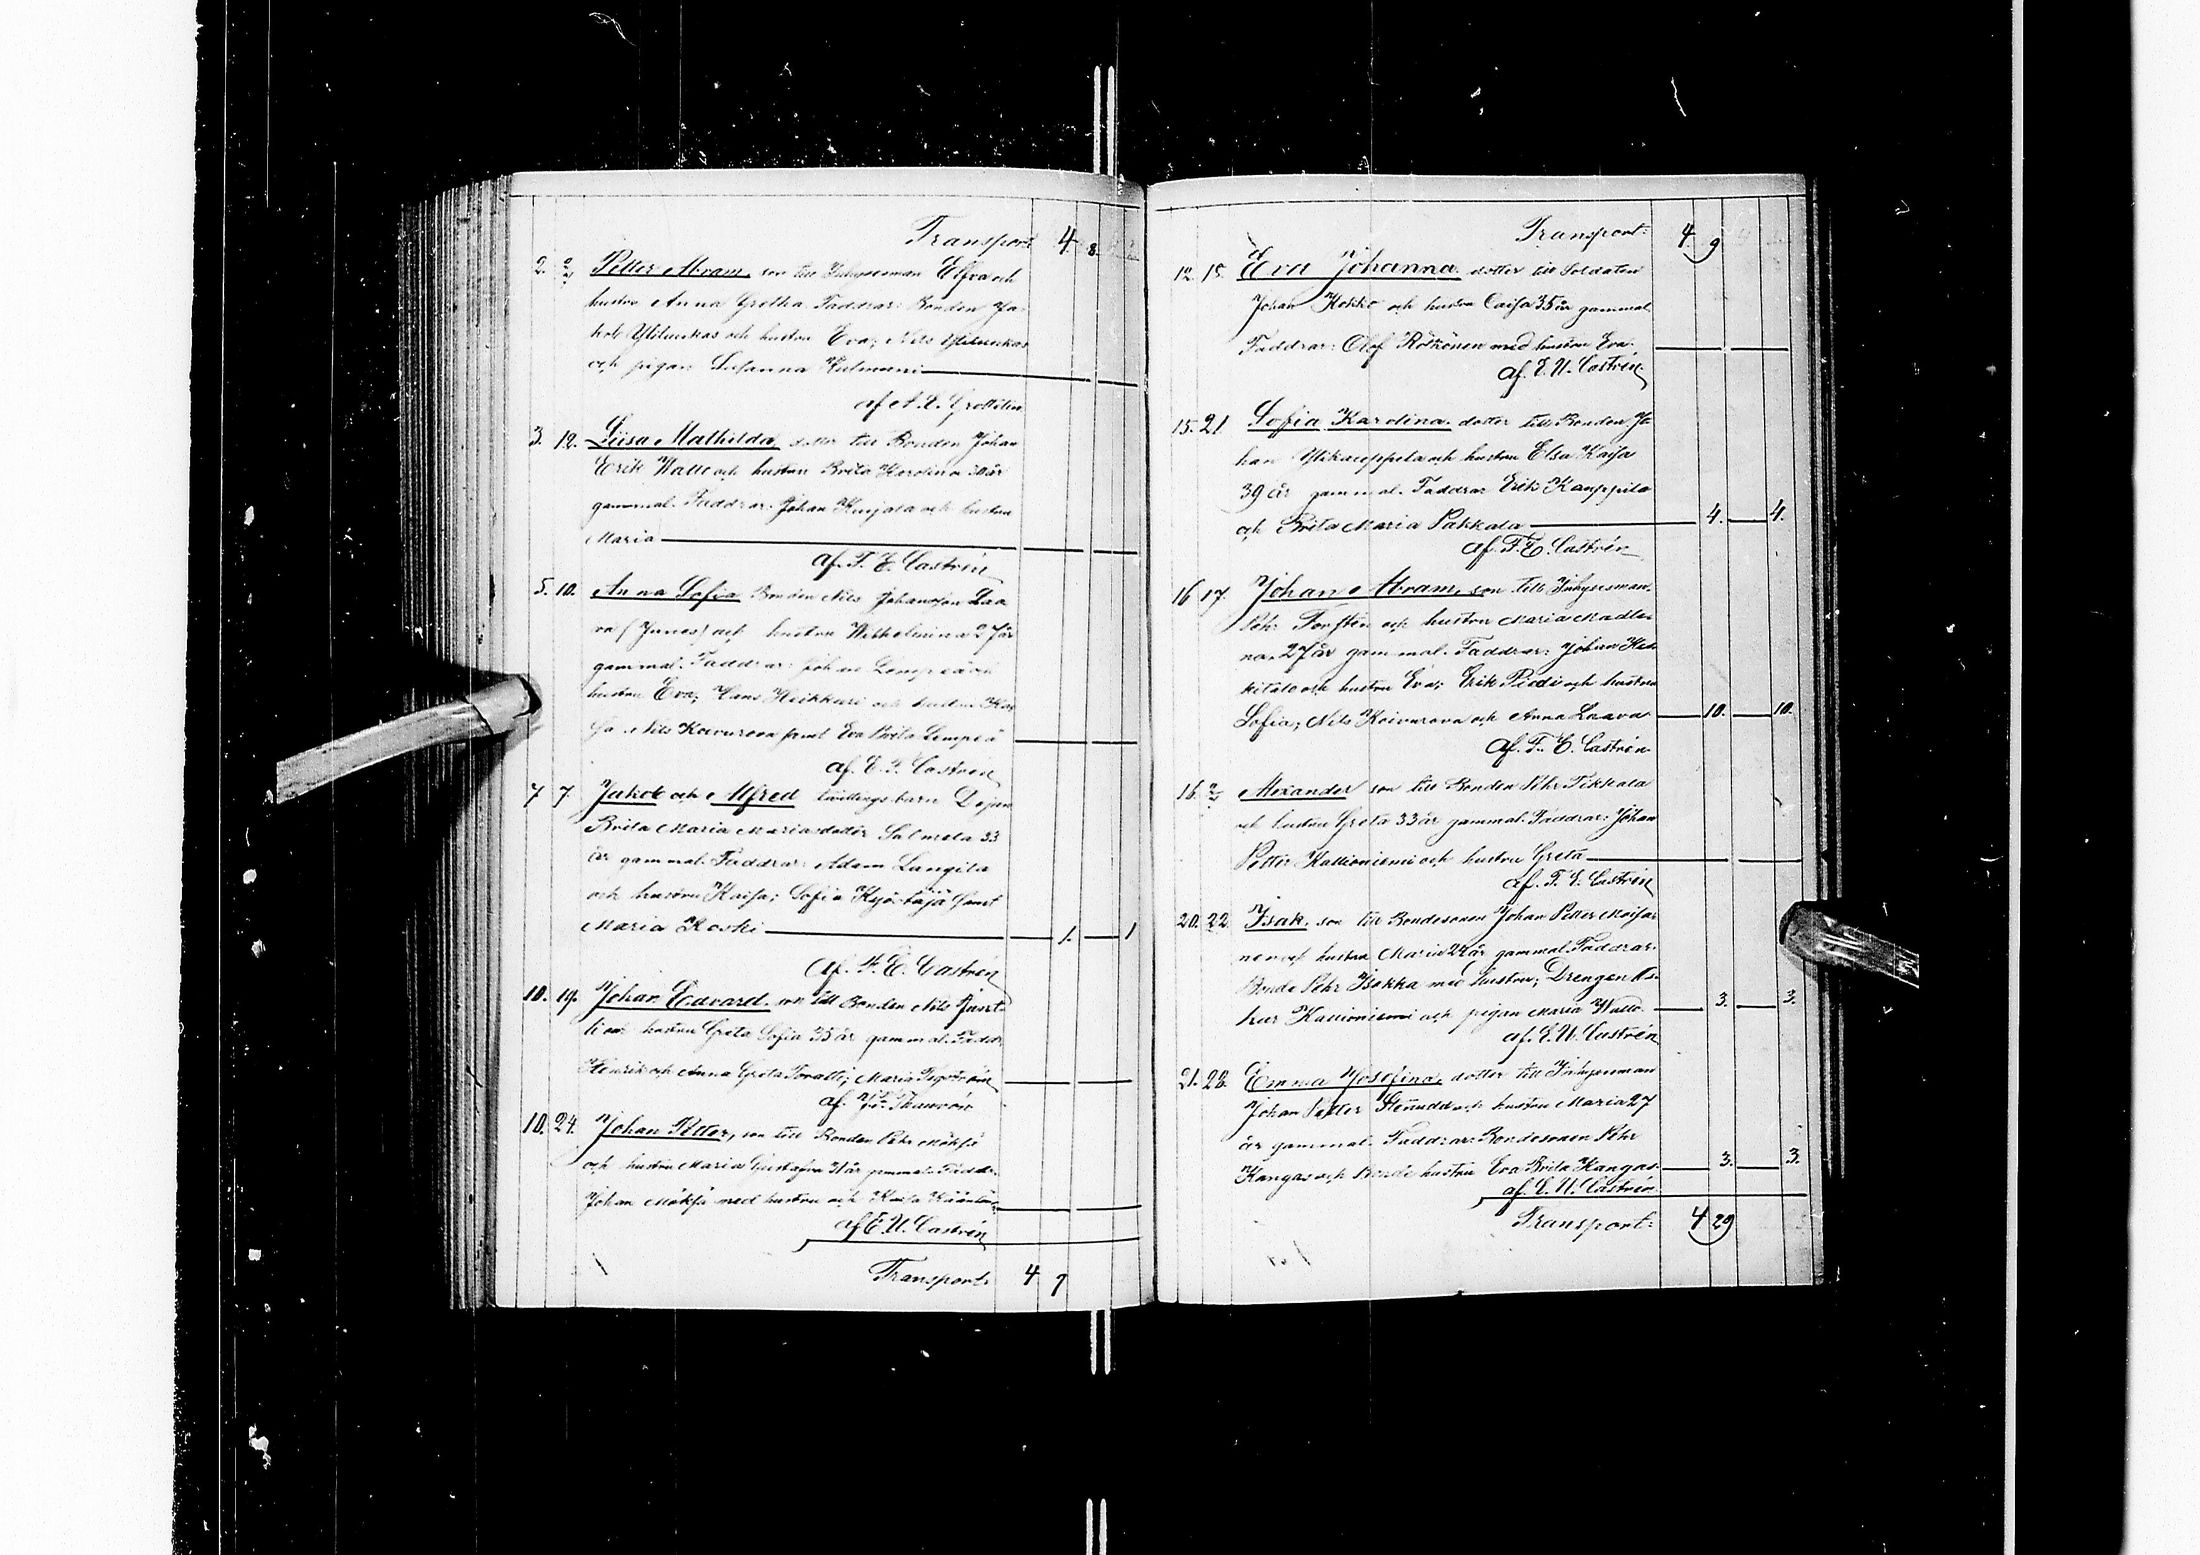 Transport: 4. 8.
2. Petter Abram, son till Inhysesman Elf och
hustru Anna Gretha Faddrar: Bonden Ja-
kob Yliluckas och hustru Eva; Nils Yliluckas
och pigan Susanna Kulmuni
af A. L. Grottelin
3. 12. Liisa Mathilda, dotter till Bonden Johan
Erik Wallo och hustru Brita Karolina 30 år
gammal. Faddrar: Johan Karjala och hustru
Maria
af. F. E. Castrén
5. 10. Anna Sofia Bonden Nils Johansson Laa
va (Junes) och hustru Wilhelmina 27 år
gammal. Faddrar: Johan Lempeä och
hustru Eva; Hans Heikkuri och hustru Kai
sa Nils Koivurova samt Eva Brita Lempeä
af. E. F. Castrén
7 7. Jakob och Alfred tvillings barn Dejan
Brita Maria Mariasdotter Salmela 33
år gammal. Faddrar: Adam Langila
och hustru Kaisa; Sofia Kyöstäjä samt
Maria Koski 1. 1
af. F. E. Castrén
10. 19. Johan Edvard. son till Bonden Nils
hustru Greta Sofia 35 år gammal. Faddr.
Henrik och Anna Greta; Maria
af.
10. 24. Johan Petter, son till Bonden Pehr Mäkfä
och hustru Maria Gustafva 31 år gammal. Faddr:
Johan Mäkfä med hustru och Kaisa
af E. U. Castrén
Transport: 4 9
Transport: 4 9
12. 15. Eva Johanna. dotter till Soldaten
Johan Kokko och hustru Caisa 35 år gammal
Faddrar: Olof Rötkönen med hustru Eva.
af. E. U. Castrén
15. 21. Sofia Karolina. dotter till Bonden Jo
han Ylikauppila och hustru Elsa Kaisa
39 år gammal. Faddrar Erik Kauppila
och Brita Maria Pakkala 4. 4.
af. F. E. Castrén
16 17. Johan Abram, son till Inhysesman
Pehr Forsten och hustru Maria Madle-
na. 27 år gammal. Faddrar: Johan Kes
kitalo och hustru Eva; Erik Piedi och hustru
Sofia; Nils Koivurova och Anna Laava 10. 10.
af. F. E. Castrén
16. Alexander son till Bonden Pehr Tikkala
och hustru Greta 33 år gammal. Faddrar: Johan
Petter Kallioniemi och hustru Greta
af. F. E. Castrén
20. 22. Isak. son till Bondesonen Johan Petter Maisa
nen och hustru Maria 24 år gammal. Faddrar:
Bonde Pehr Isokka med hustru; Drengen Os-
kar Kallioniemi och pigan Maria Wallo. 3. 3.
af. E. U. Castrén
21. 28. Emma Josefina, dotter till Inhysesman
Johan Petter Stenudd och hustru Maria 27
år gammal. Faddrar: Bondesonen Pehr
Kangas och Bonde hustru Eva Brita Kangas. 3. 3.
af. E. U. Castrén.
Transport: 4 29